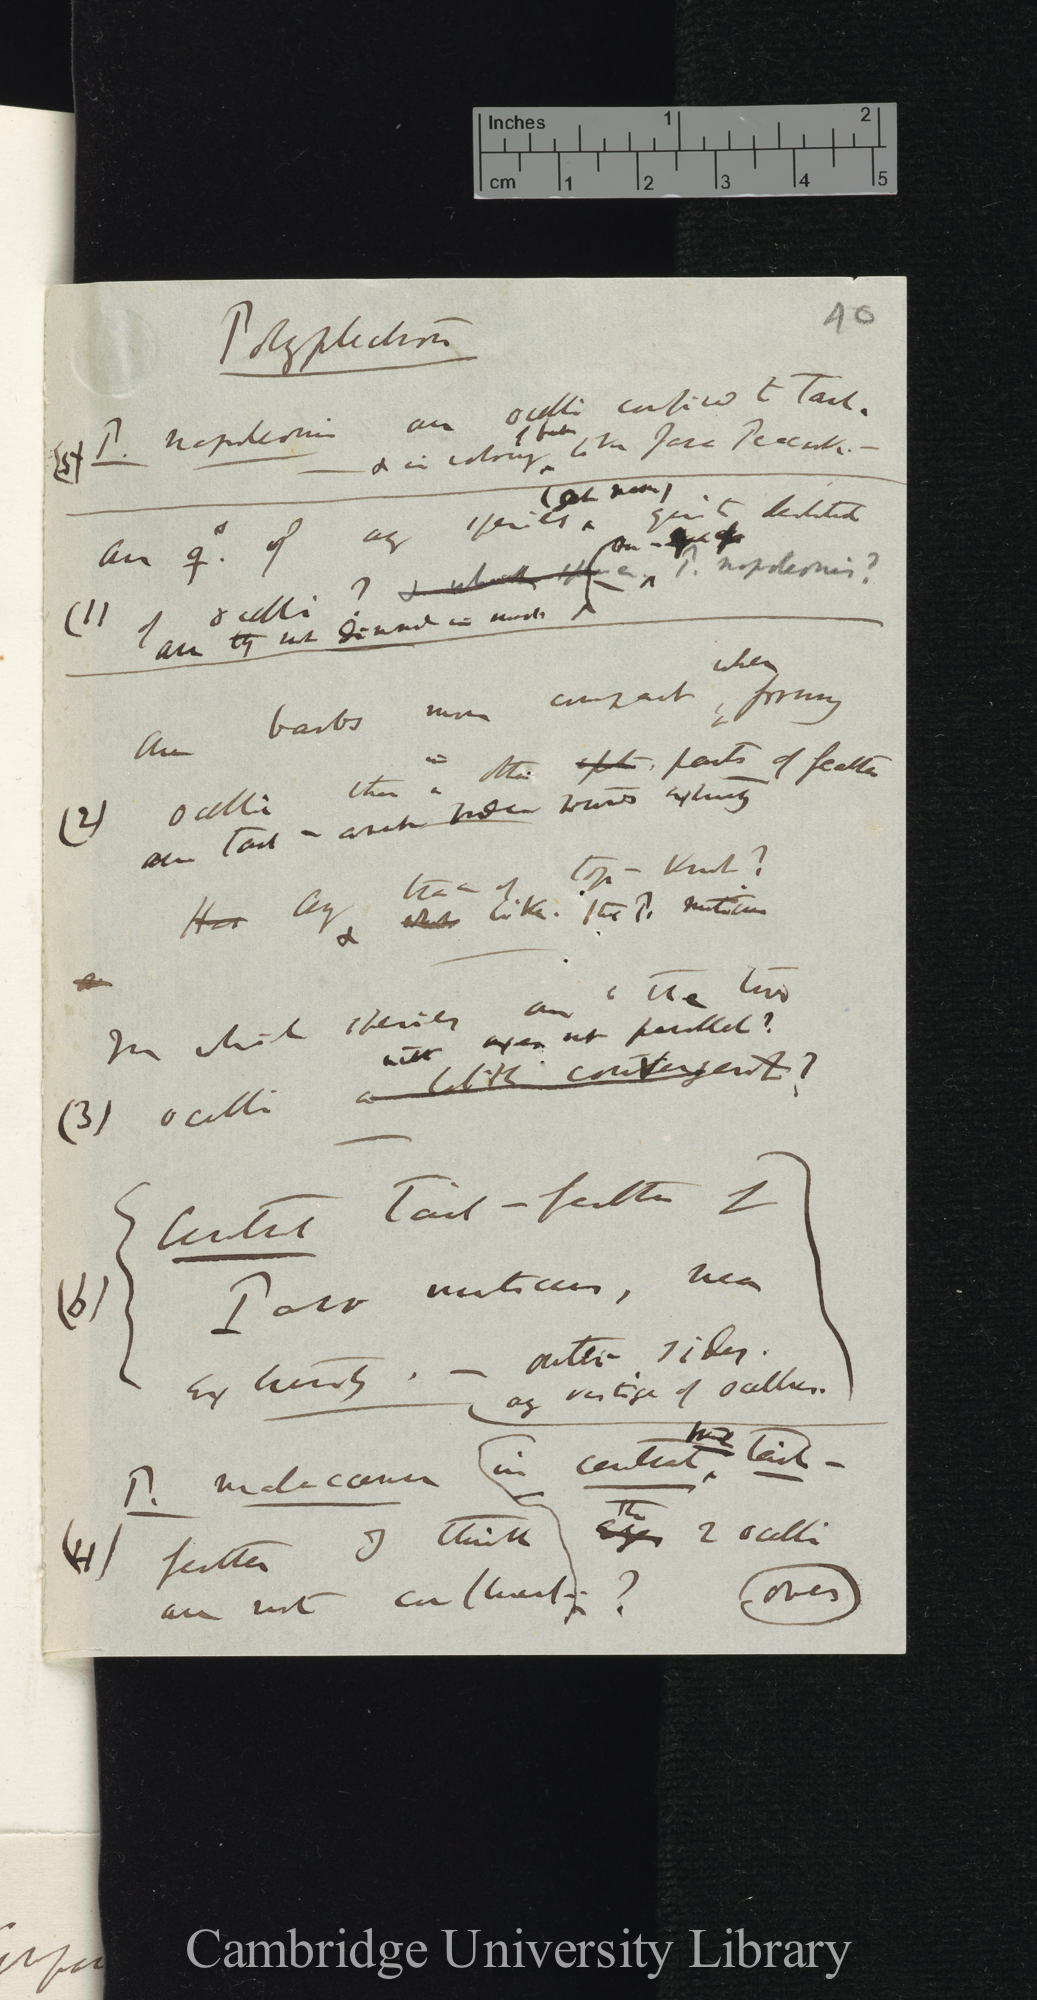 Inches 1 2
cm 1 2 3 4 5
40
Polyplectron
(5) P. napoleonis are ocelli confined to Tail.
& in colouring of back like Java Peacock. —
(get name)
are ♀s. of any species, quite destitute
(1) of ocelli? & which P. napoleonis?
are they not dimmed in
when
are barbs more compact, forming
(2) ocelli than in other parts of feather
are tail- towards extremity
Has any trace of top-knot?
& like the P. muticus
In which species are the two
with axes not parallel?
(3) ocelli convergent?
(6) Central Tail-feather of
Pavo muticus, near
extremity. — outer sides.
any vestige of ocellus.
true
P. malaccense (in central, tail-
(4) feather I think The Eyes 2 ocelli
are not confluent?
over
Cambridge University Library